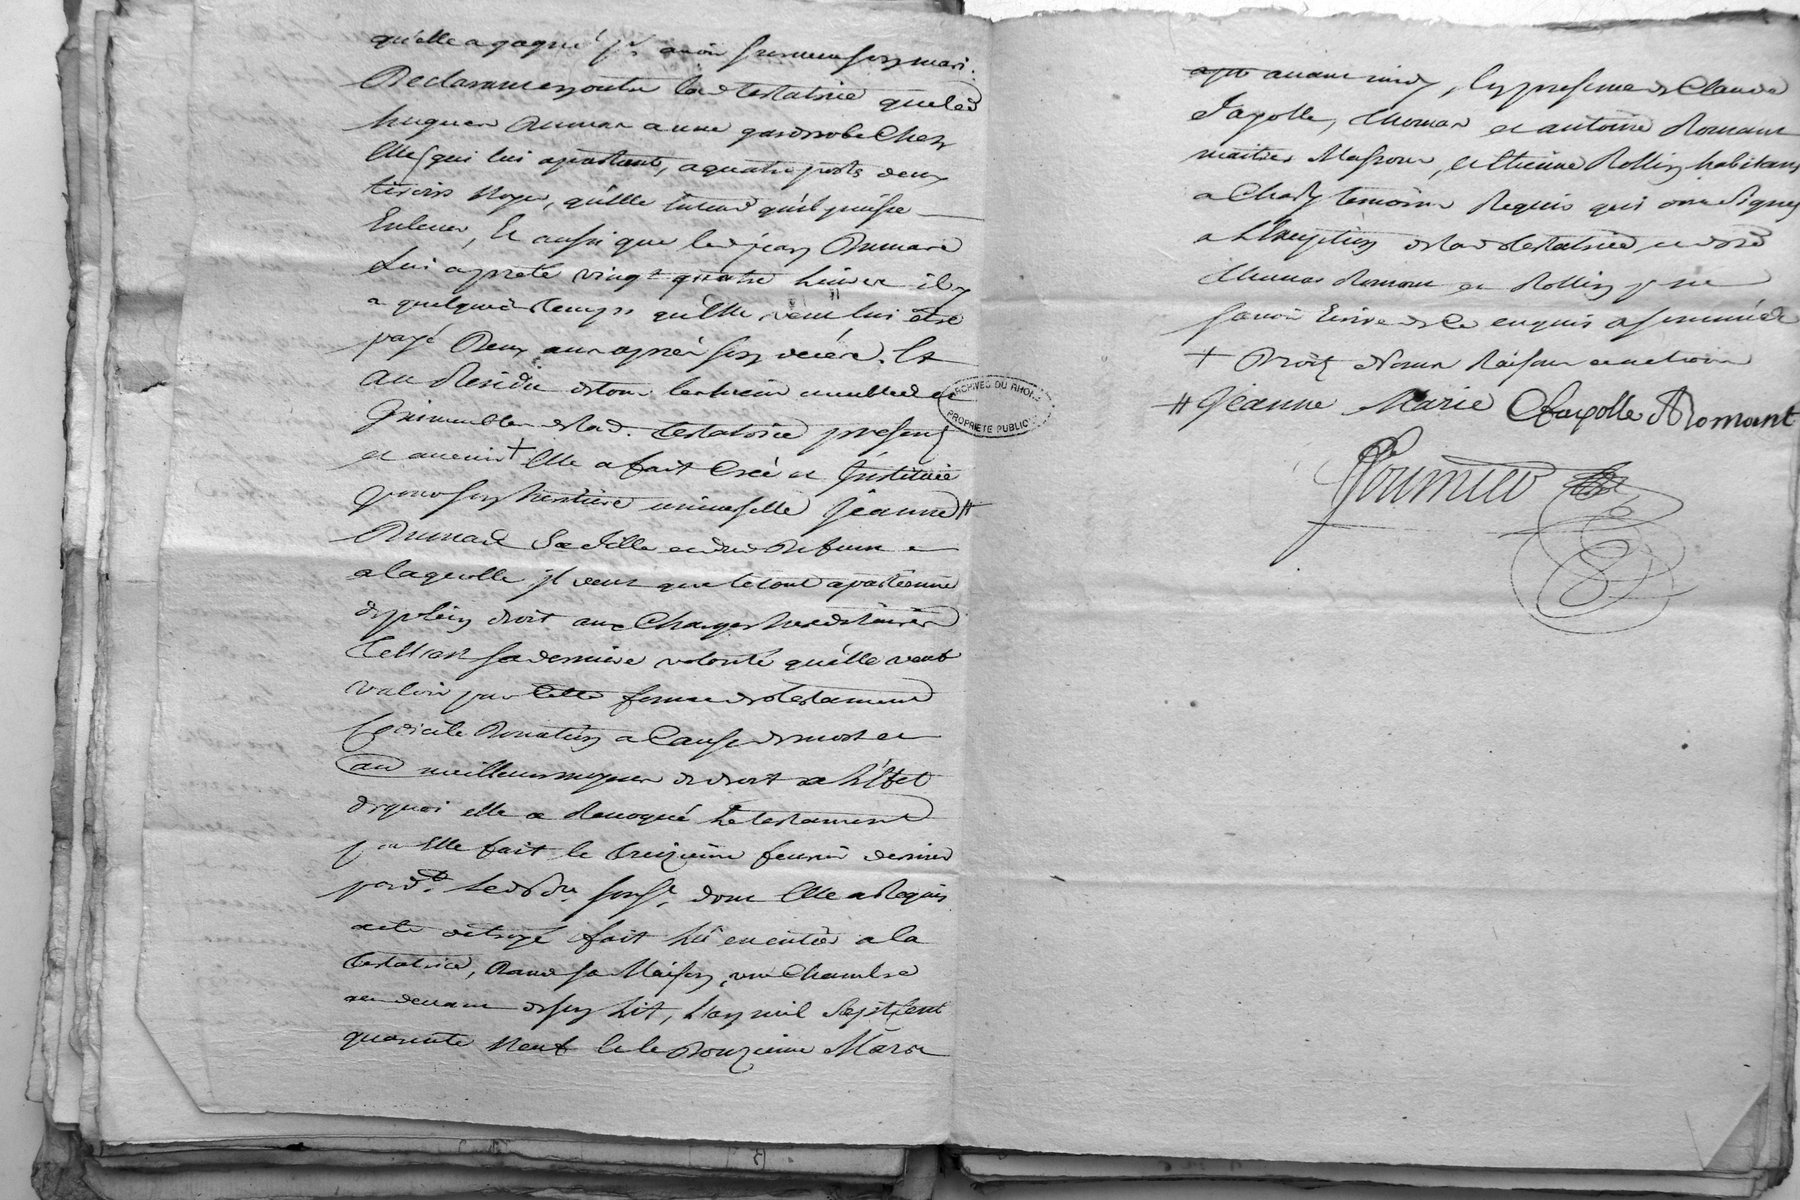 qu'elle a gagné pr avoir
Declarant en outre lad testatrice que led
hugues Dumas a une garderobe chez
Elle qui lui apartient, a quatre portes deux
tiroirs noyer, qu'elle entend qu'il puisse
Enlever, Et aussi que led jean Dumas
Lui a preté vingt quatre livres il y
a quelques temps qu'Elle veut lui être
payé Deux ans après son décès. Et
au Residu de tous les biens meubles et
Immeubles de lad. testatrice presens
et avenir + Elle a fait Créé et Instituée
pour son héritière universelle Jeanne #
Dumas sa fille et dud Defunt
a laquelle il veut que le tout apartienne
de plein droit aux Charges hereditaires
Telle est sa derniere volonté qu'elle veut
valoir par cette forme de testament
Codicile Donation a Cause de mort et
au meilleur moyen de droit a l'Effet
de quoi elle a Revoqué le testament
par Elle fait le treizieme fevrier dernier
pard.t led No.re souss.é dont Elle a Requis
acte octroyé fait lû en entier a la
testatrice, Dans sa Maison, une Chambre
au devant de son lit, L'an mil sept Cent
quarante neuf et le Douzieme Mars
avant midy, En presence de Claude
Fayolle, thomas et antoine Romant
maitres Massons, et Etienne Rollin habitans
a temoins Requis qui ont signé
a L'Exception de lad testatrice, et desd
thomas Romant et Rollin pr ne
savoir Ecrire de ce enquis et sommés
+ Droits Noms Raisons et actions
# Jeanne Marie Cfayolle ARomant
Fournier
ARCHIVES DU RHONE
PROPRIETE PUBLIQUE